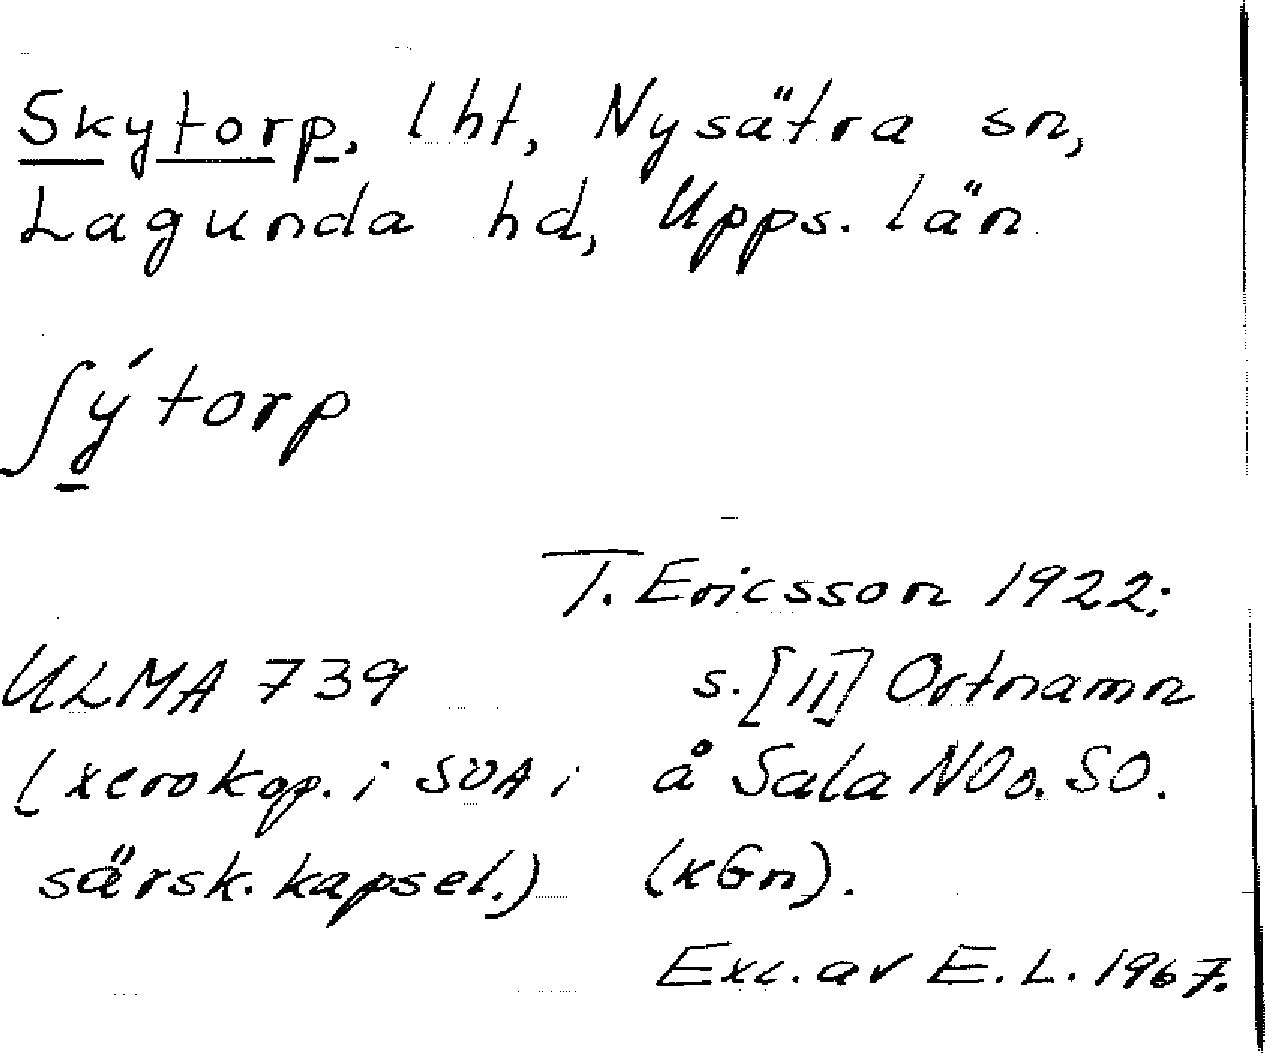 Skytorp, lht, Nysätra sn,
Lagunda hd, Upps. län
ʃý̱torp
T. Ericsson 1922:
ULMA 739 s. [II] Ortnamn
(xerokop. i SOA i å Sala NO o. SO.
särsk. kapsel.) (kGn).
Exc. av E. L. 1967.